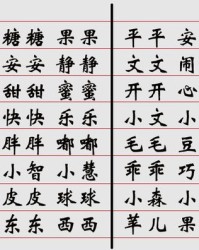 糖糖 果果 平平安安
安安 静静 文文闹闹
甜甜 蜜蜜 开开心心
快快 乐乐 小文小文
胖胖 嘟嘟 毛毛豆豆
小智 小慧 乖乖巧巧
皮皮 球球 小森小森
东东 西西 苹儿果儿